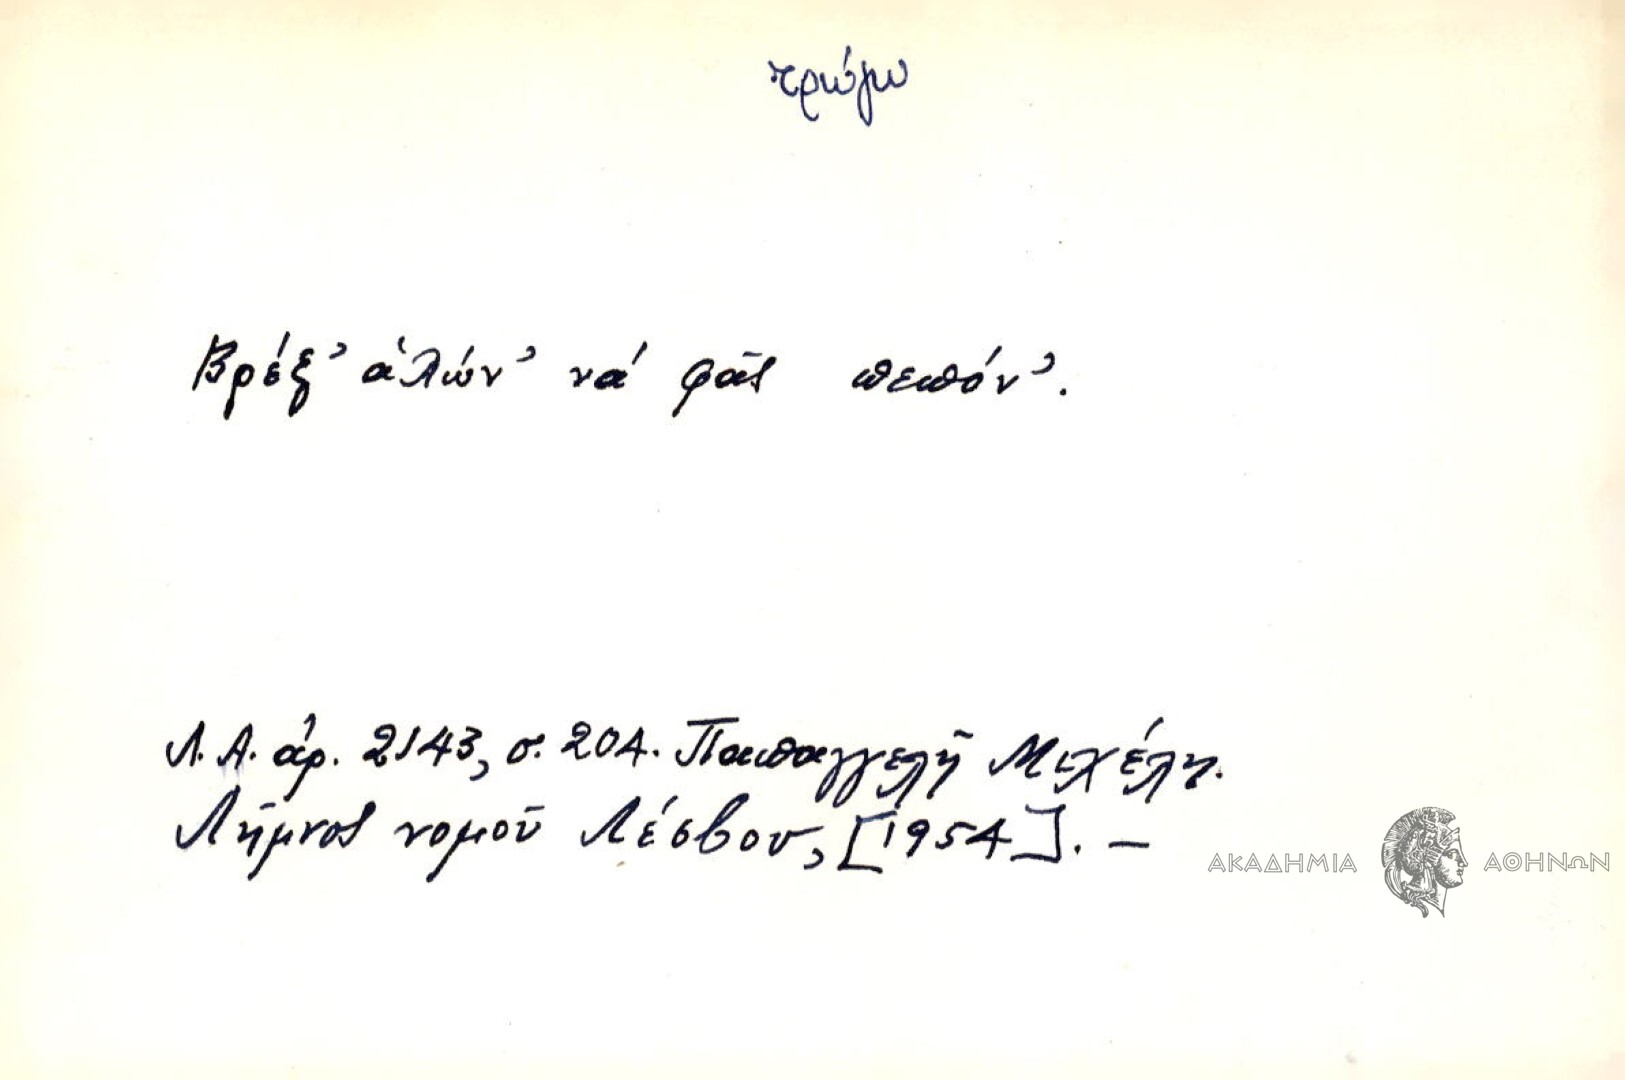 τρώγω
Βρέξ' ἁλών' νά φᾶς πεπόν'.
Λ.Α. ἀρ. 2143, σ. 204. Παπαγγελῆ Μιχέλη.
Λῆμνος νομοῦ Λέσβου, [1954]. —
ΑΚΑΔΗΜΙΑ ΑΘΗΝΩΝ